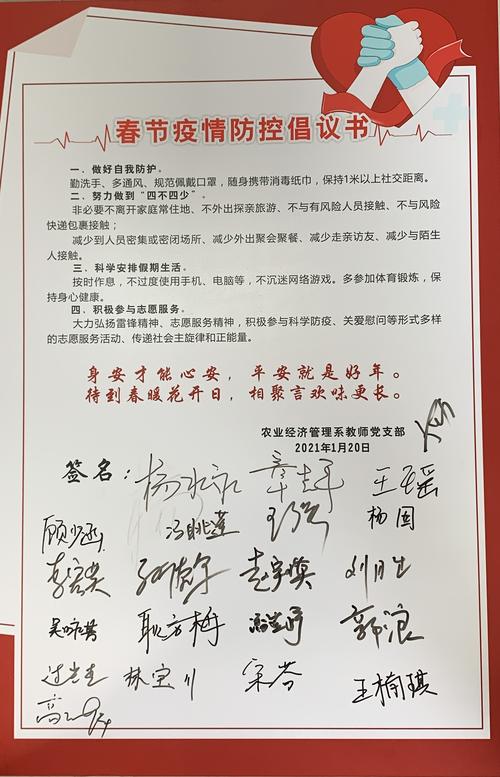 春节疫情防控倡议书
一、做好自我防护。
勤洗手、多通风、规范佩戴口罩，随身携带消毒纸巾，保持1米以上社交距离。
二、努力做到“四不四少”。
非必要不离开家庭常住地、不外出探亲旅游、不与有风险人员接触、不与风险
快递包裹接触；
减少到人员密集或密闭场所、减少外出聚会聚餐、减少走亲访友、减少与陌生
人接触。
三、科学安排假期生活。
按时作息，不过度使用手机、电脑等，不沉迷网络游戏。多参加体育锻炼，保
持身心健康。
四、积极参与志愿服务。
大力弘扬雷锋精神、志愿服务精神，积极参与科学防疫、关爱慰问等形式多样
的志愿服务活动、传递社会主旋律和正能量。
身安才能心安，平安就是好年。
待到春暖花开日，相聚言欢味更长。
农业经济管理系教师党支部
2021年1月20日
签名：杨水永
顾少涵 冯眺莲 杨国
刘月生
耿方梅 郭浪
林宝川 宋芬 王楠琪